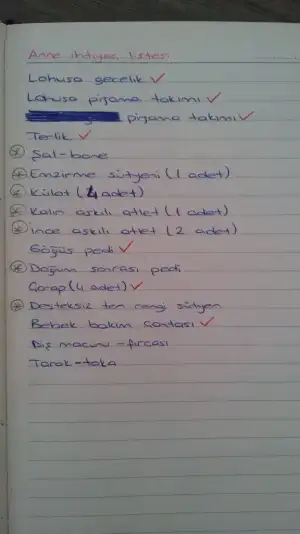 Anne ihtiyaç listesi
Lohusa gecelik ✓
Lohusa pijama takımı ✓
pijama takımı ✓
Terlik ✓
Şal-bone
Emzirme sütyeni (1 adet)
Külot (4 adet)
Kalın askılı atlet (1 adet)
ince askılı atlet (2 adet)
Göğüs pedi ✓
Doğum sonrası pedi
Çorap (4 adet) ✓
Desteksiz ten rengi sütyen
Bebek bakım çantası ✓
Diş macunu - fırçası
Tarak-toka